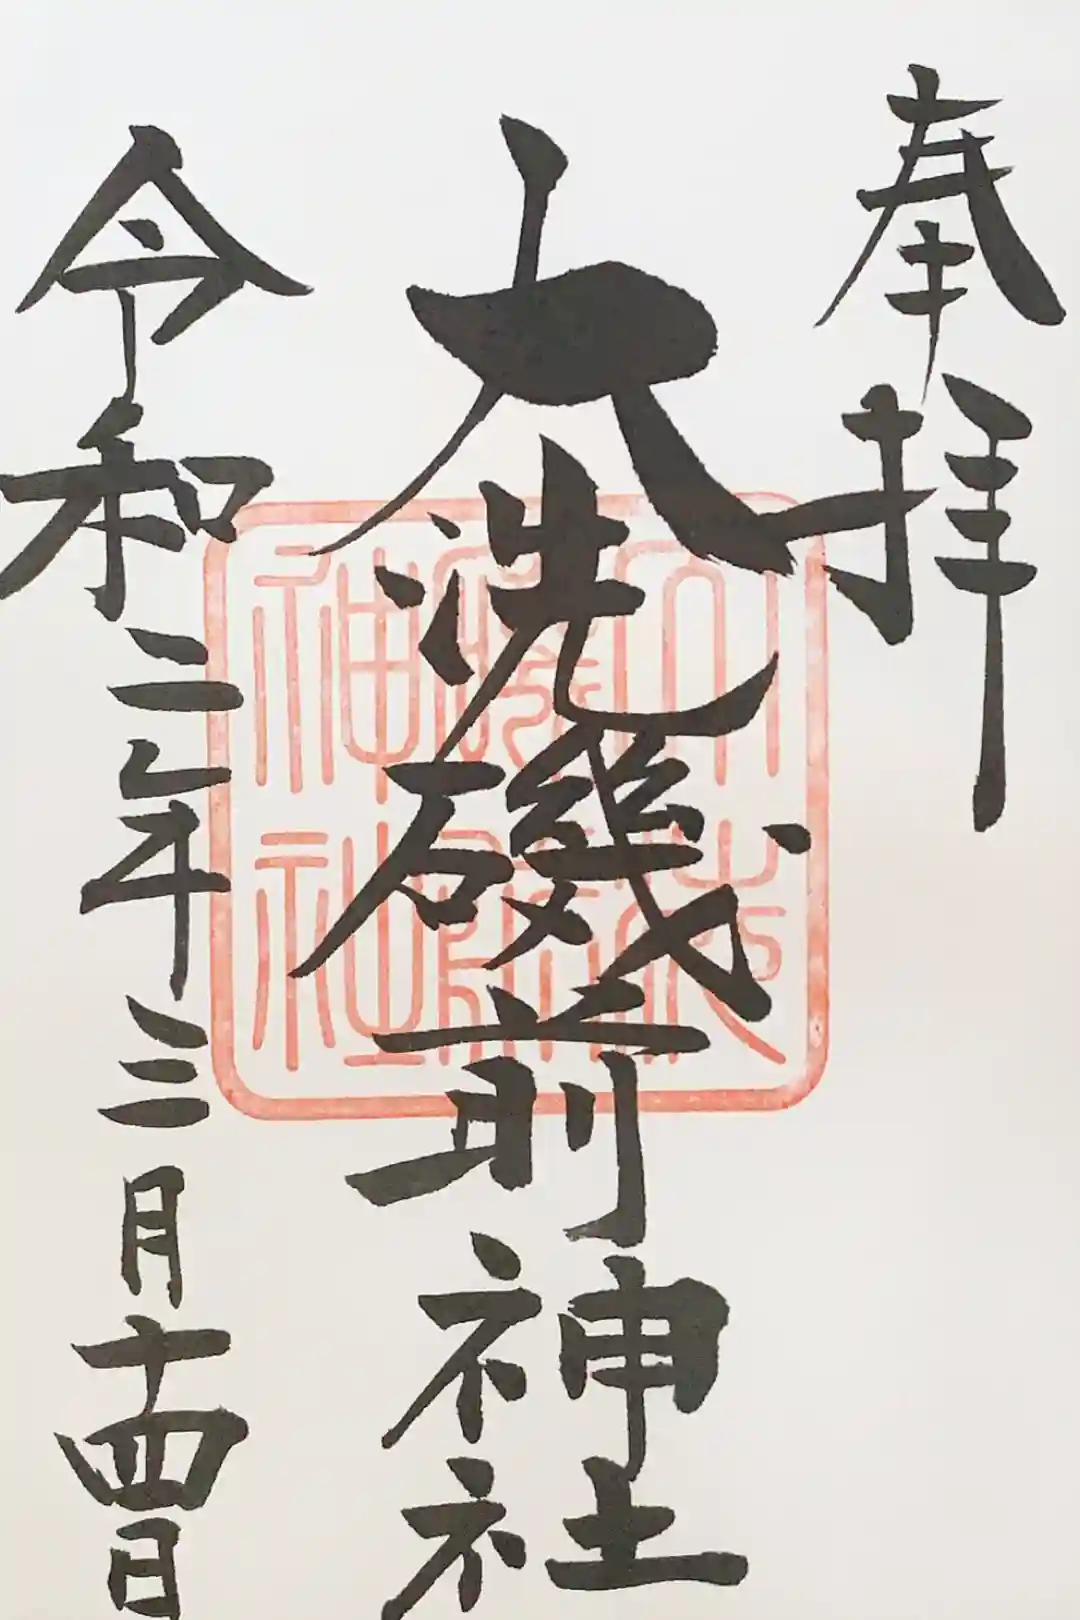 奉拝
大洗磯前神社
大洗
磯前
神社
令和二年三月十四日